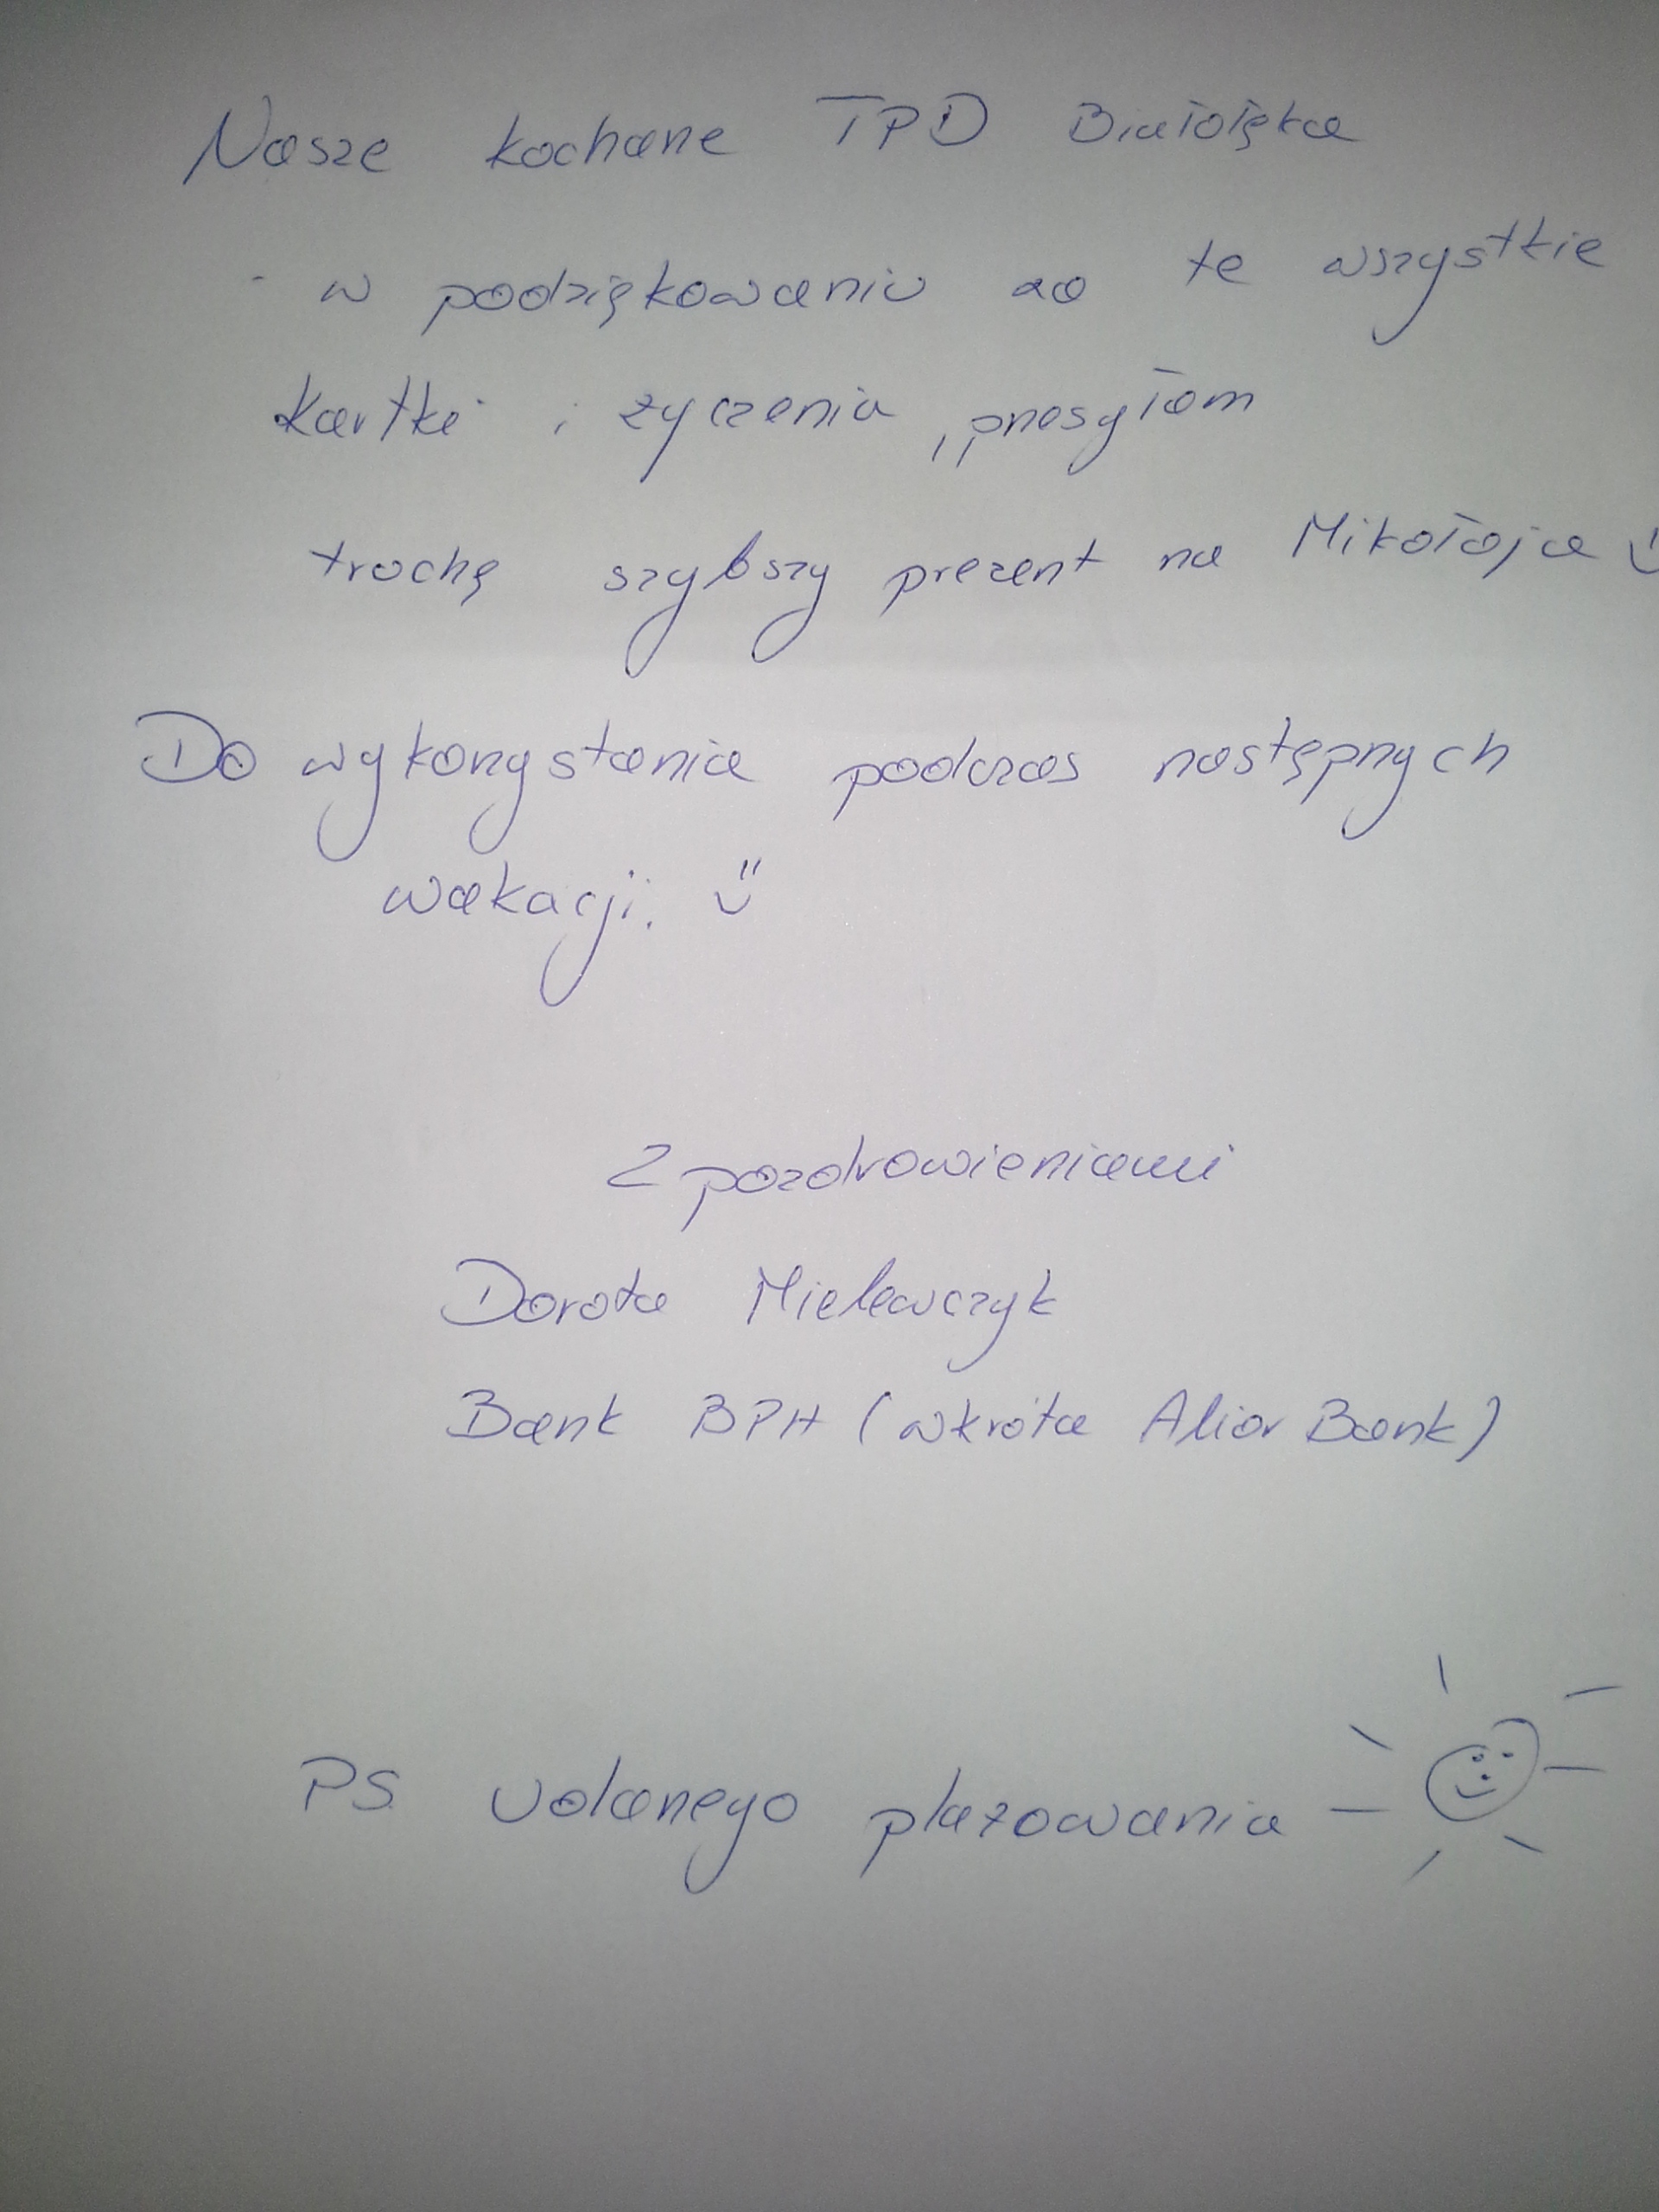 Nasze kochane TPD Białołęka
- w podziękowaniu za te wszystkie
kartki i życzenia, przesyłam
trochę szybszy prezent na Mikołaja
Do wykorzystania podczas następnych
wakacji.
Z pozdrowieniami
Dorota Mielewczyk
Bank BPH (wkrótce Alior Bank)
PS. udanego plażowania